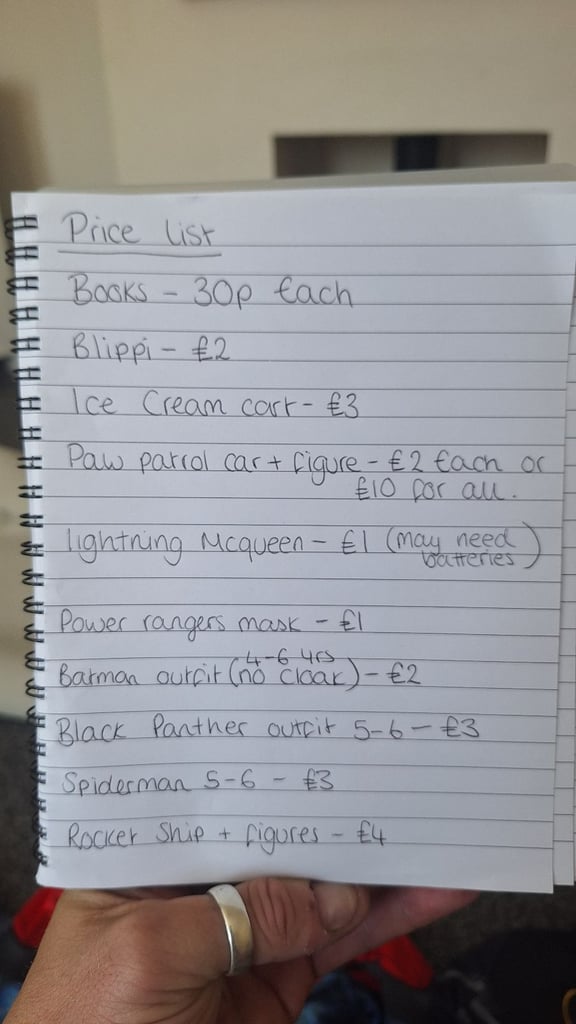 Price list
Books - 30p Each
Blippi - £2
Ice Cream cart - £3
Paw patrol car + figure - £2 Each or
£10 for all.
lightning Mcqueen - £1 (may need
batteries)
Power rangers mask - £1
4-6 yrs
Batman outfit (no cloak) - £2
Black Panther outfit 5-6 - £3
Spiderman 5-6 - £3
Rocket Ship + figures - £4